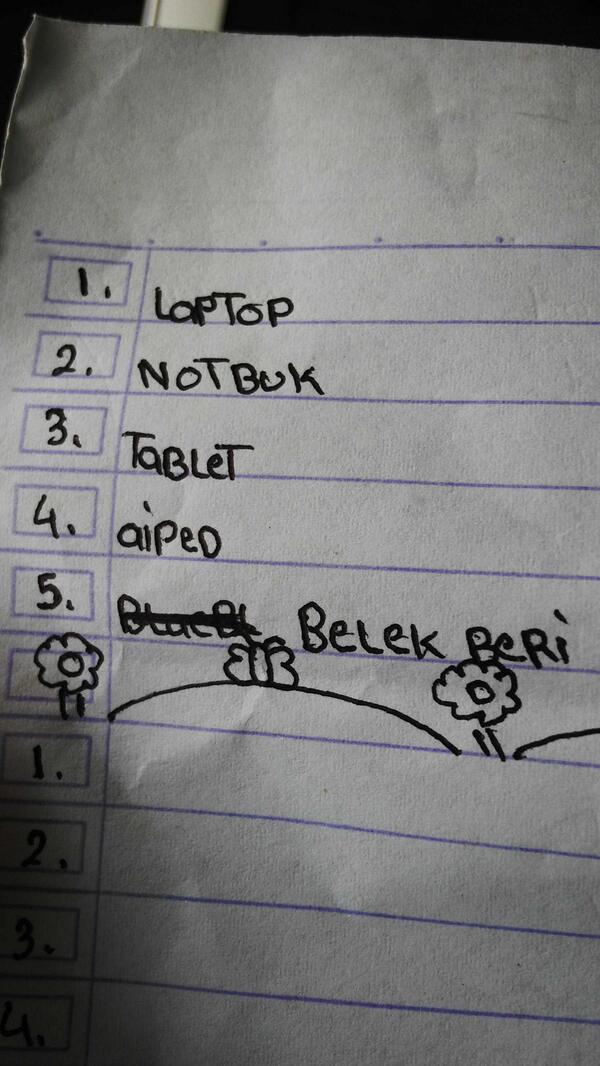 1. LAPTOP
2. NOTBUK
3. TABLET
4. aiPeD
5. BELEK BERI
1.
2.
3.
4.